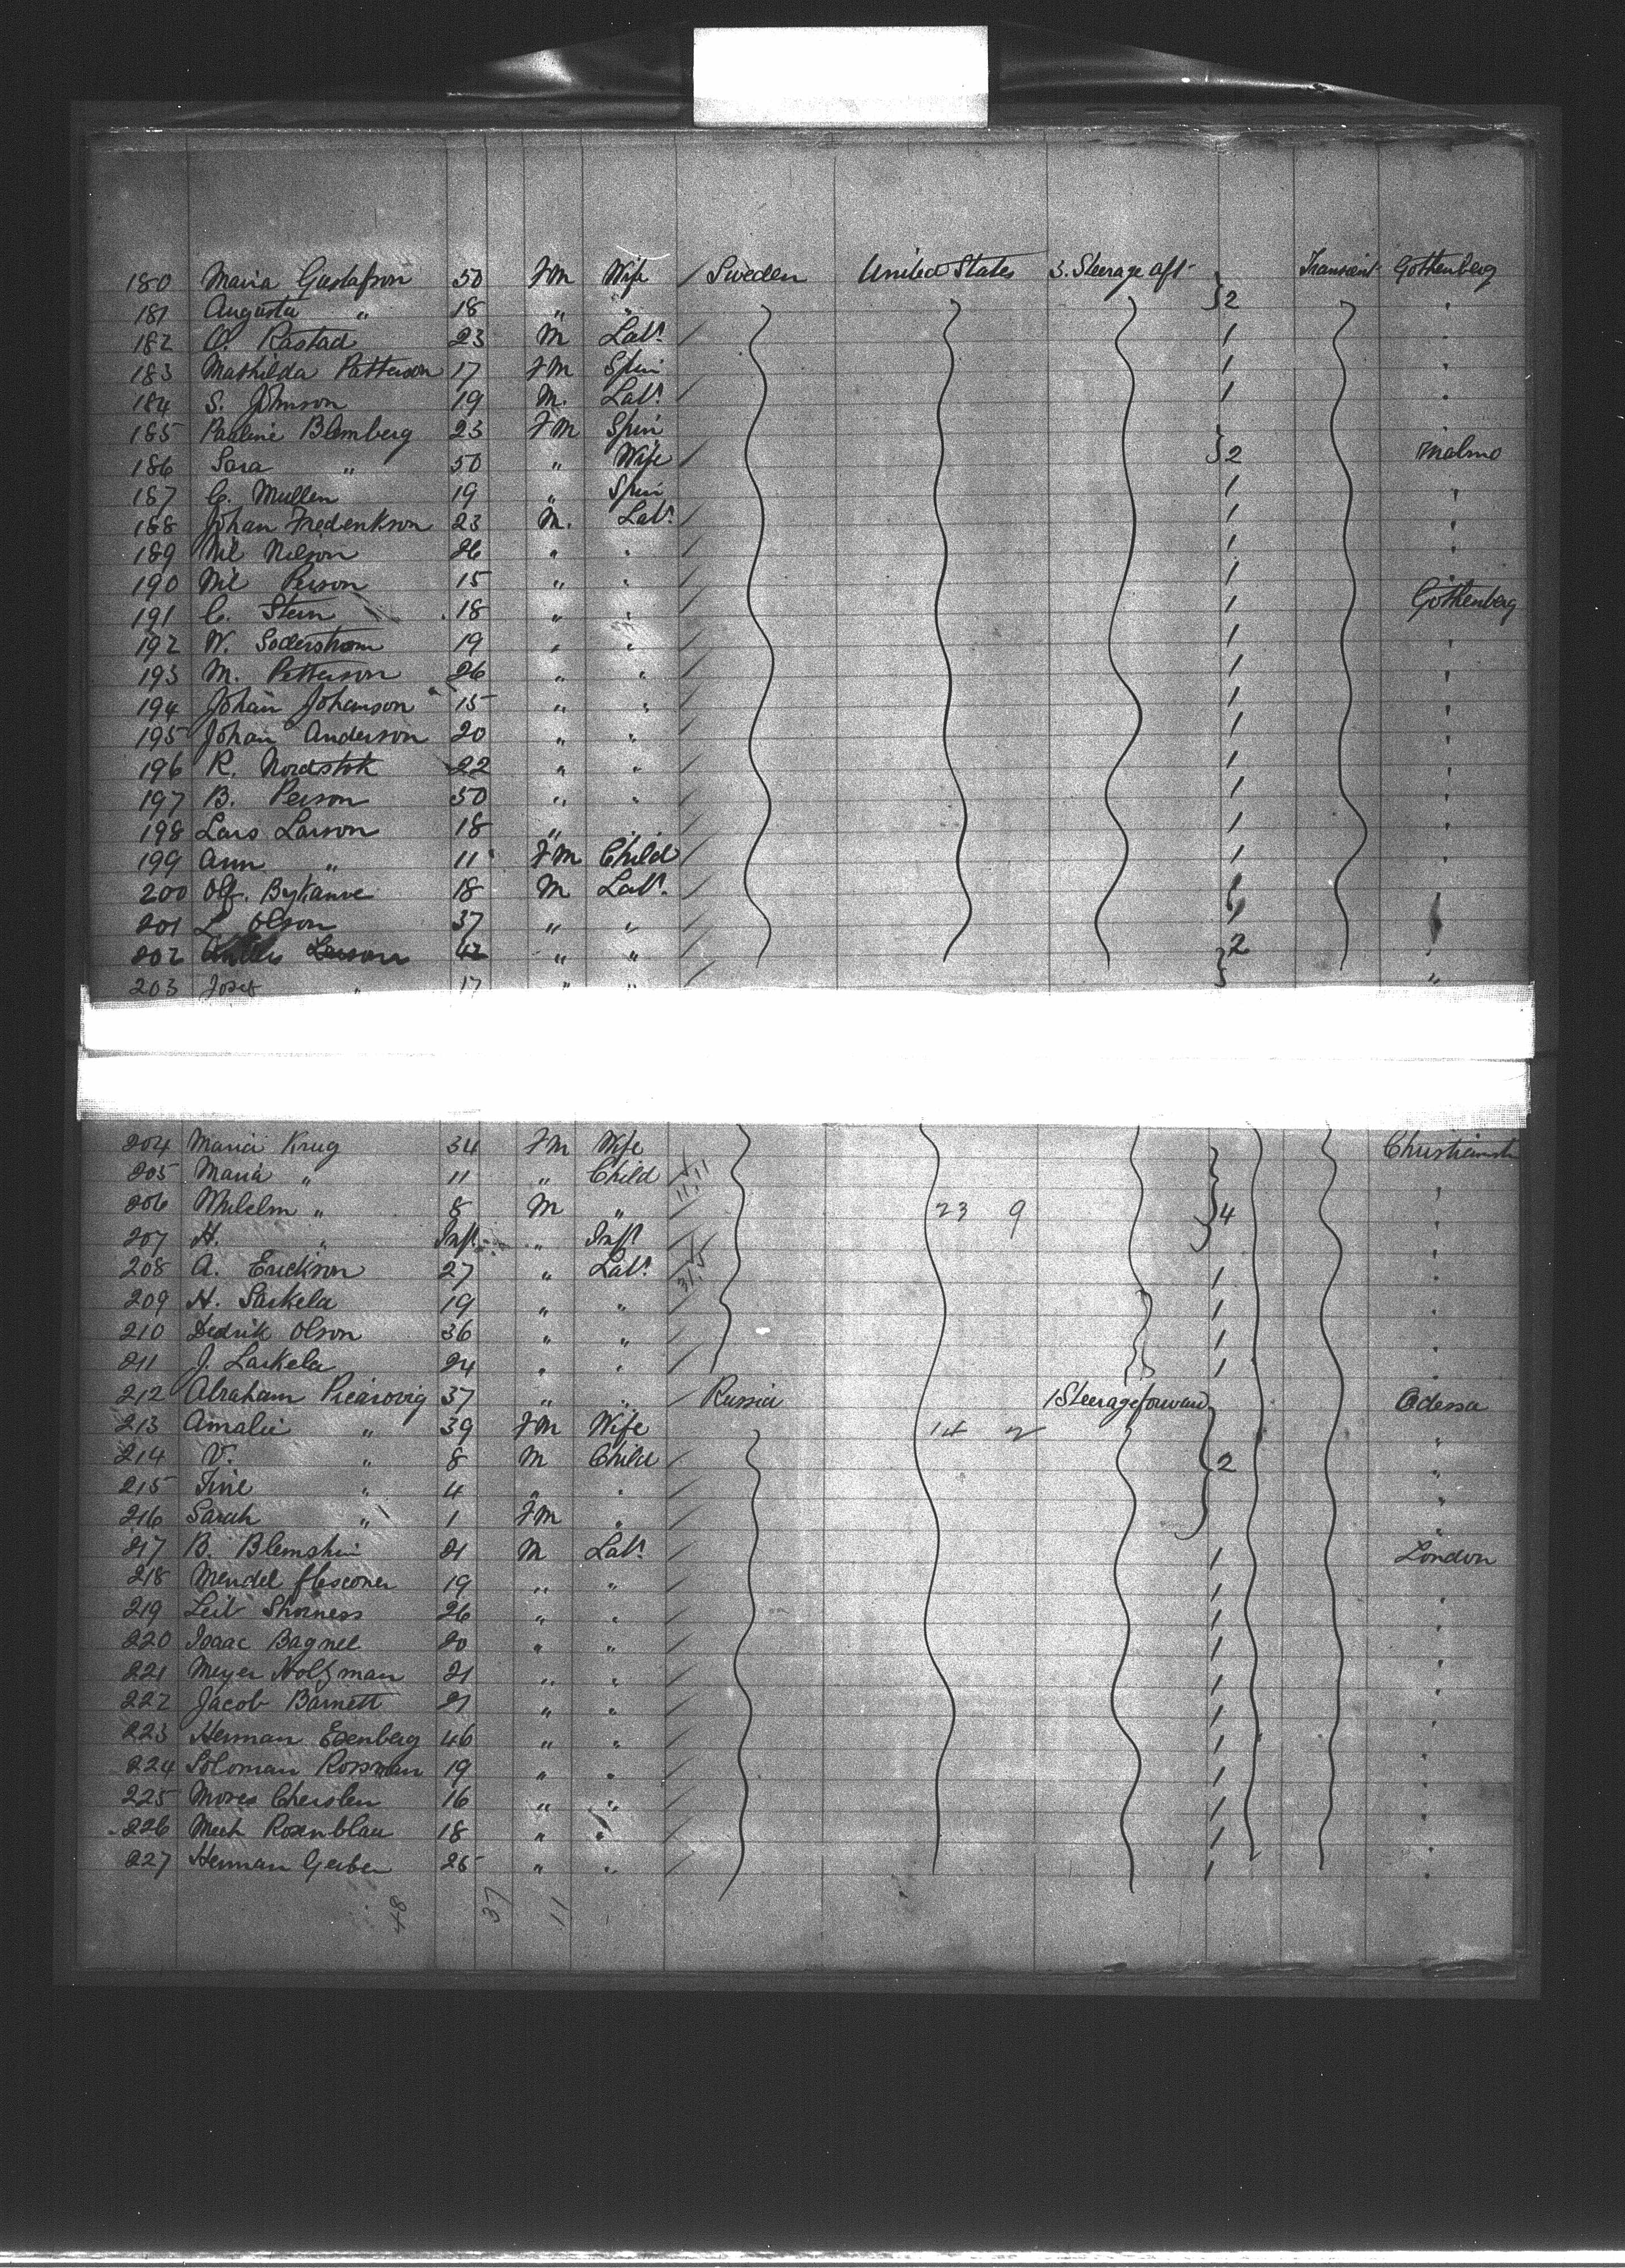 180 Maria Gustafson 50 Fm Wife / Sweden United States 3. Steerage aft Transient Gothenberg
181 Augusta " 18 " " } 2 "
182 O. Rastad 23 M Labr. / 1 "
183 Mathilda Patterson 17 Fm Spin / 1 "
184 S. Johnson 19 M. Labr. / 1 "
185 Pauline Blemberg 23 Fm Spin
186 Sara " 50 " Wife / } 2 Malmo
187 C. Mullen 19 " Spin 1 "
188 Johan Frederikson 23 M. Labr. / 1 "
189 Nil Nilson 26 " " / 1 "
190 Nil Person 15 " " / 1 "
191 C. Stern 18 " " / 1 Gothenberg
192 W. Soderstrom 19 " " / 1 "
193 M. Petterson 26 " " / 1 "
194 Johan Johanson 15 " " / 1 "
195 Johan Anderson 20 " " / 1 "
196 R. Nordstok 22 " " / 1 "
197 B. Person 50 " " / 1 "
198 Lars Larson 18 " " / 1 "
199 Ann " 11 Fm Child / 1 "
200 Olf. 18 M Labr. /
201 L. Olson 37 " " / 1
202 Larson 42 " " / } 2 "
203 Josef " 17 " " / "
204 Maria Krug 34 Fm Wife
205 Maria " 11 " Child / 11.11 "
206 Whilelm " 8 M " / 23 9 } 4 "
207 H. " Inft. " Inft. "
208 A. Erickson 27 " Labr. / 1 "
209 H. Sarkela 19 " " / 1 "
210 Dedrik Olson 36 " " / 1 "
211 J. Laskela 24 " " / 1 "
212 Abraham 37 " " / Russia 1 Steerage forward Odessa
213 Amalie " 39 Fm Wife / 14 2 "
214 V. " 8 M Child / } 2 "
215 Tine " 4 " " / "
216 Sarah " 1 Fm " / "
217 B. Blemshin 21 M Labr. / 1 London
218 Mendel 19 " " / 1 "
219 Leib Shorness 26 " " / 1 "
220 Isaac Bagnel 20 " " / 1 "
221 Meyer Holzman 21 " " / 1 "
222 Jacob Barnett 21 " " / 1 "
223 Herman Esenberg 46 " " / 1 "
224 Soloman Rossman 19 " " / 1 "
225 Moses Cherslen 16 " " / 1 "
226 Mech Rosenblau 18 " " / 1 "
227 Herman Gerber 25 " " / 1 "
48 37 11